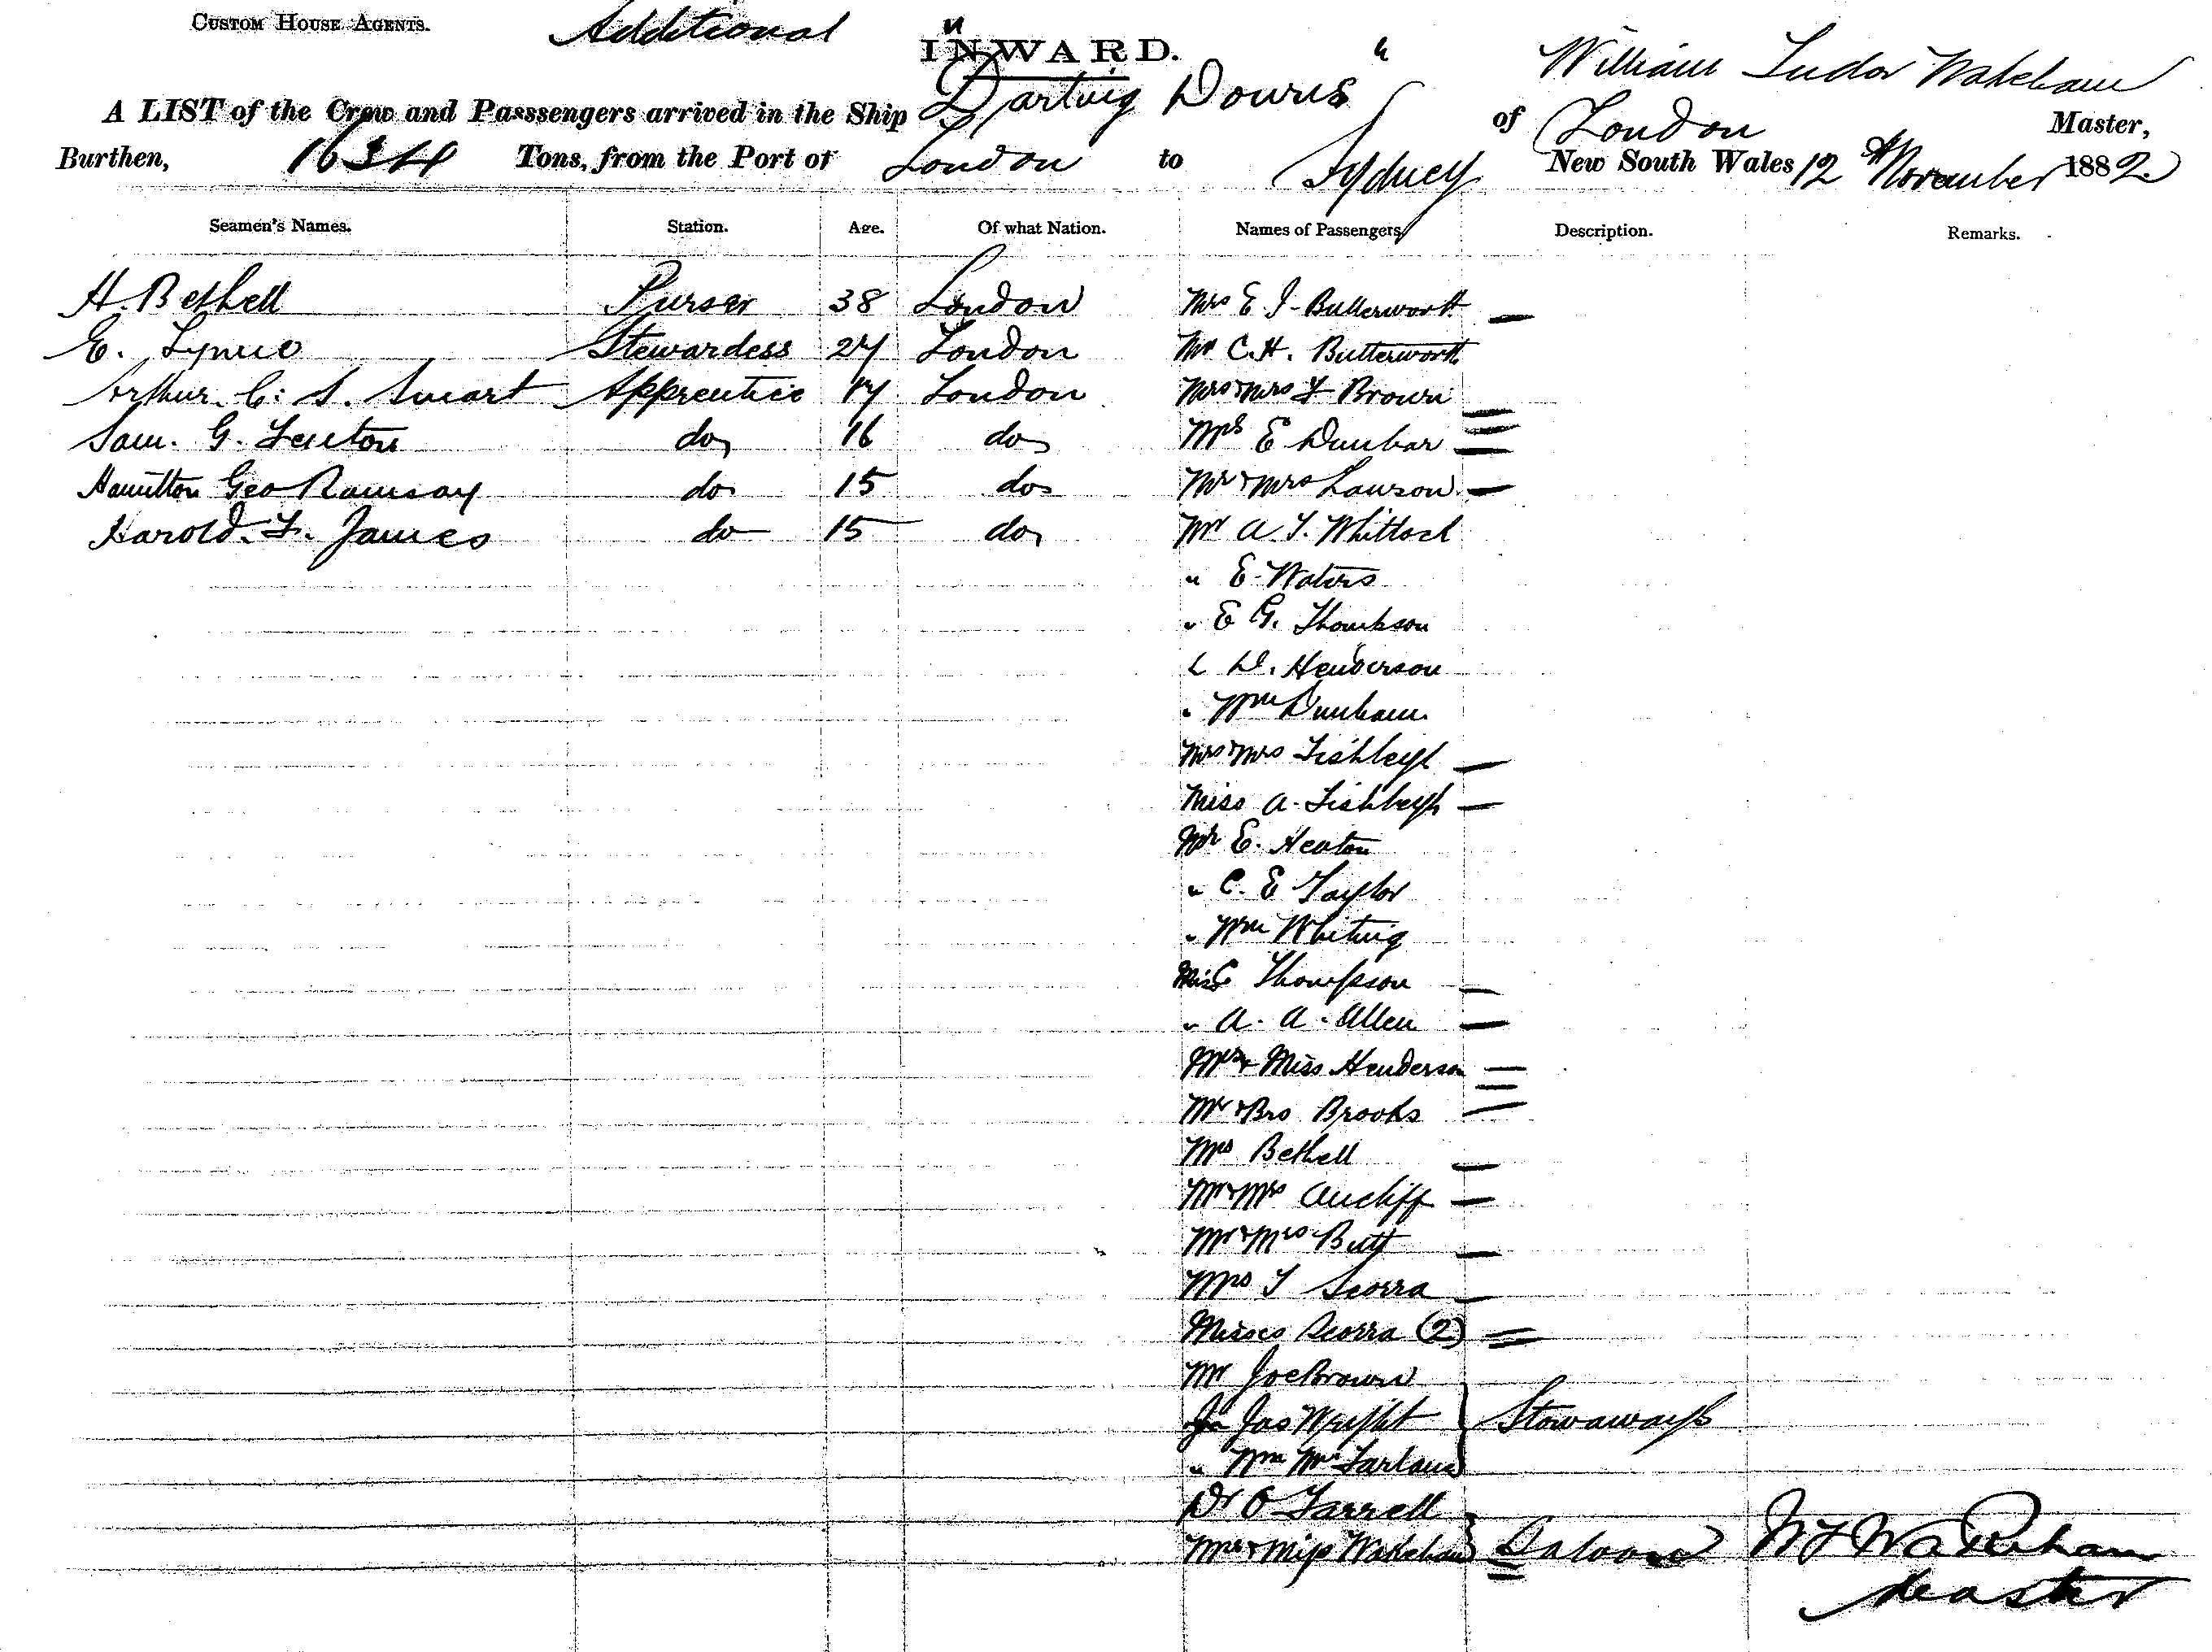 CUSTOM HOUSE AGENTS.
Additional
INWARD.
A LIST of the Crew and Passsengers arrived in the Ship "Darling Downs" of London William Tudor Wakeham Master,
Burthen, 1634 Tons, from the Port of London to Sydney New South Wales 12th November 1882
Seamen's Names. Station. Age. Of what Nation. Names of Passengers Description. Remarks.
H. Bethell Purser 38 London Mrs E J Butterworth
E. Stewardess 27 London Mr C. H. Butterworth
Arthur C. S. Smart Apprentice 17 London Mr & Mrs F Brown
Sam. G. Fenton do 16 do Mrs E Dunbar
Hamilton Geo Ramsay do 15 do Mr & Mrs Lawson
Harold F. James do 15 do Mr A. T. Whittock
" E. Waters
" E G. Thompson
" D. Henderson
" Wm Dunham
Mr & Mrs Fishleigh
Miss A. Fishleigh
Mr E. Heaton
" C. E Taylor
" Wm Whiting
Miss Thompson
" A. A. Allen
Mrs & Miss Henderson
Mr & Bro Brooks
Mrs Bethell
Mr & Mrs Aucliff
Mr & Mrs Butt
Mrs T Scorra
Misses Scorra (2)
Mr Joe Brown
Jas Wright Stowaways
" Wm McFarland
Dr O Farrell
Mrs & Miss Wakeham Saloon W T Wakeham
Master